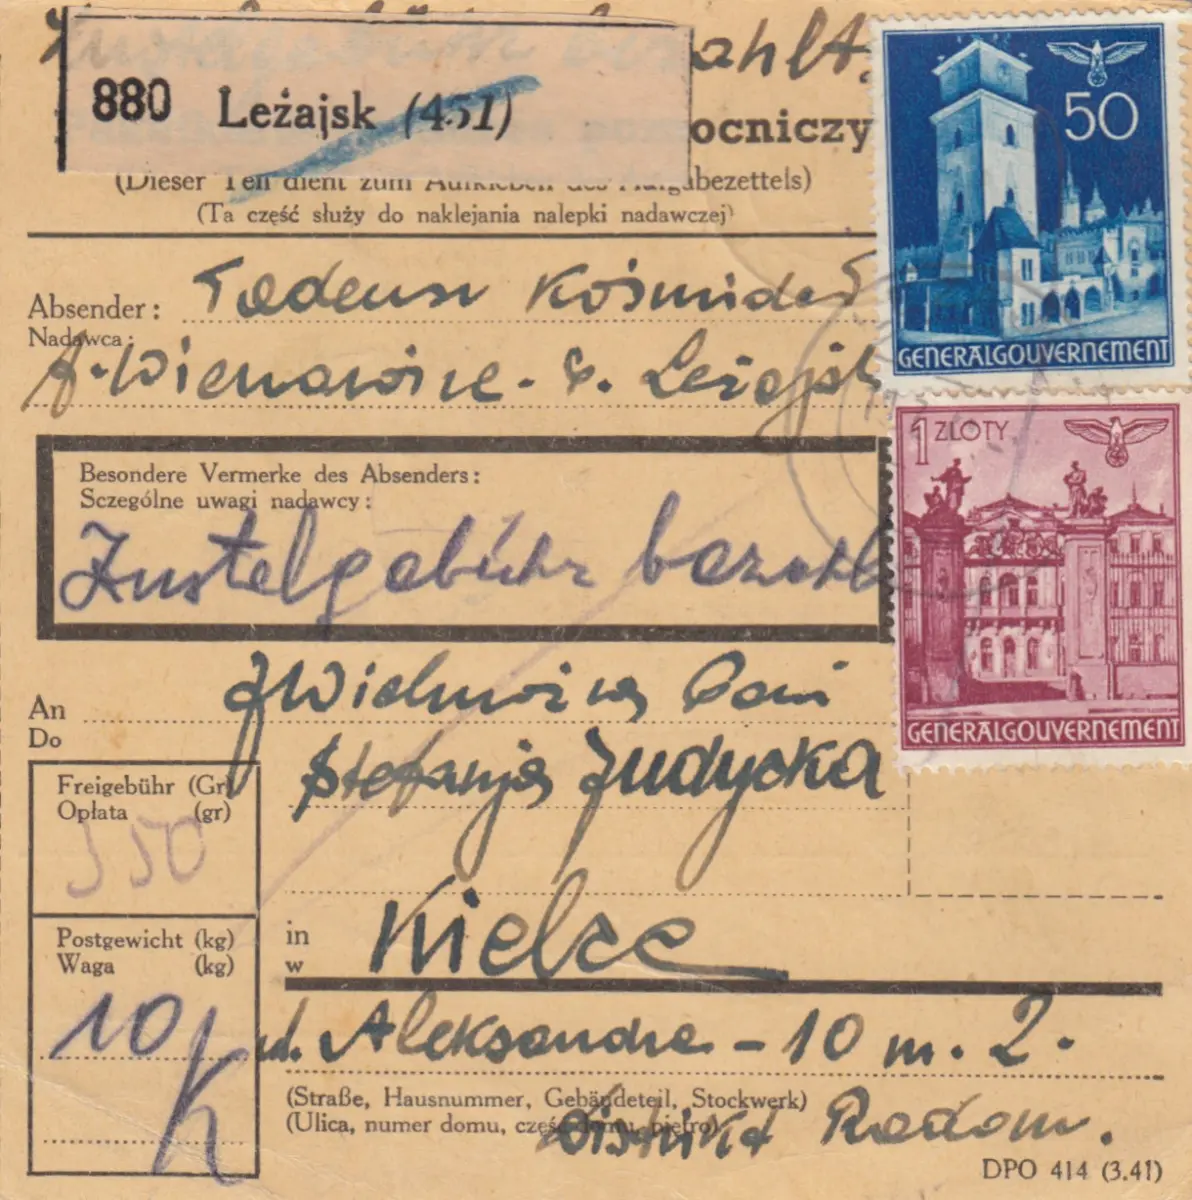 ahlt.
880 Leżajsk (451)
ocniczy
50
(Dieser Teil dient zum Aufkleben des Aufgabezettels)
(Ta część służy do naklejania nalepki nadawczej)
GENERALGOUVERNEMENT
Absender: Tadeusz Kośmider
Nadawca:
Leżajsk
1 ZLOTY
Besondere Vermerke des Absenders:
Sczególne uwagi nadawcy:
Zustelgebühr bezahl
GENERALGOUVERNEMENT
An JWielmożna Pani
Do
Stefanja Judycka
Freigebühr (Gr)
Opłata (gr)
350
Postgewicht (kg)
Waga (kg)
in Kielce
w
10
K
ul. Aleksandra - 10 m. 2.
(Straße, Hausnummer, Gebändeteil, Stockwerk)
(Ulica, numer domu, część domu, piętro)
Distrikt Radom.
DPO 414 (3.41)